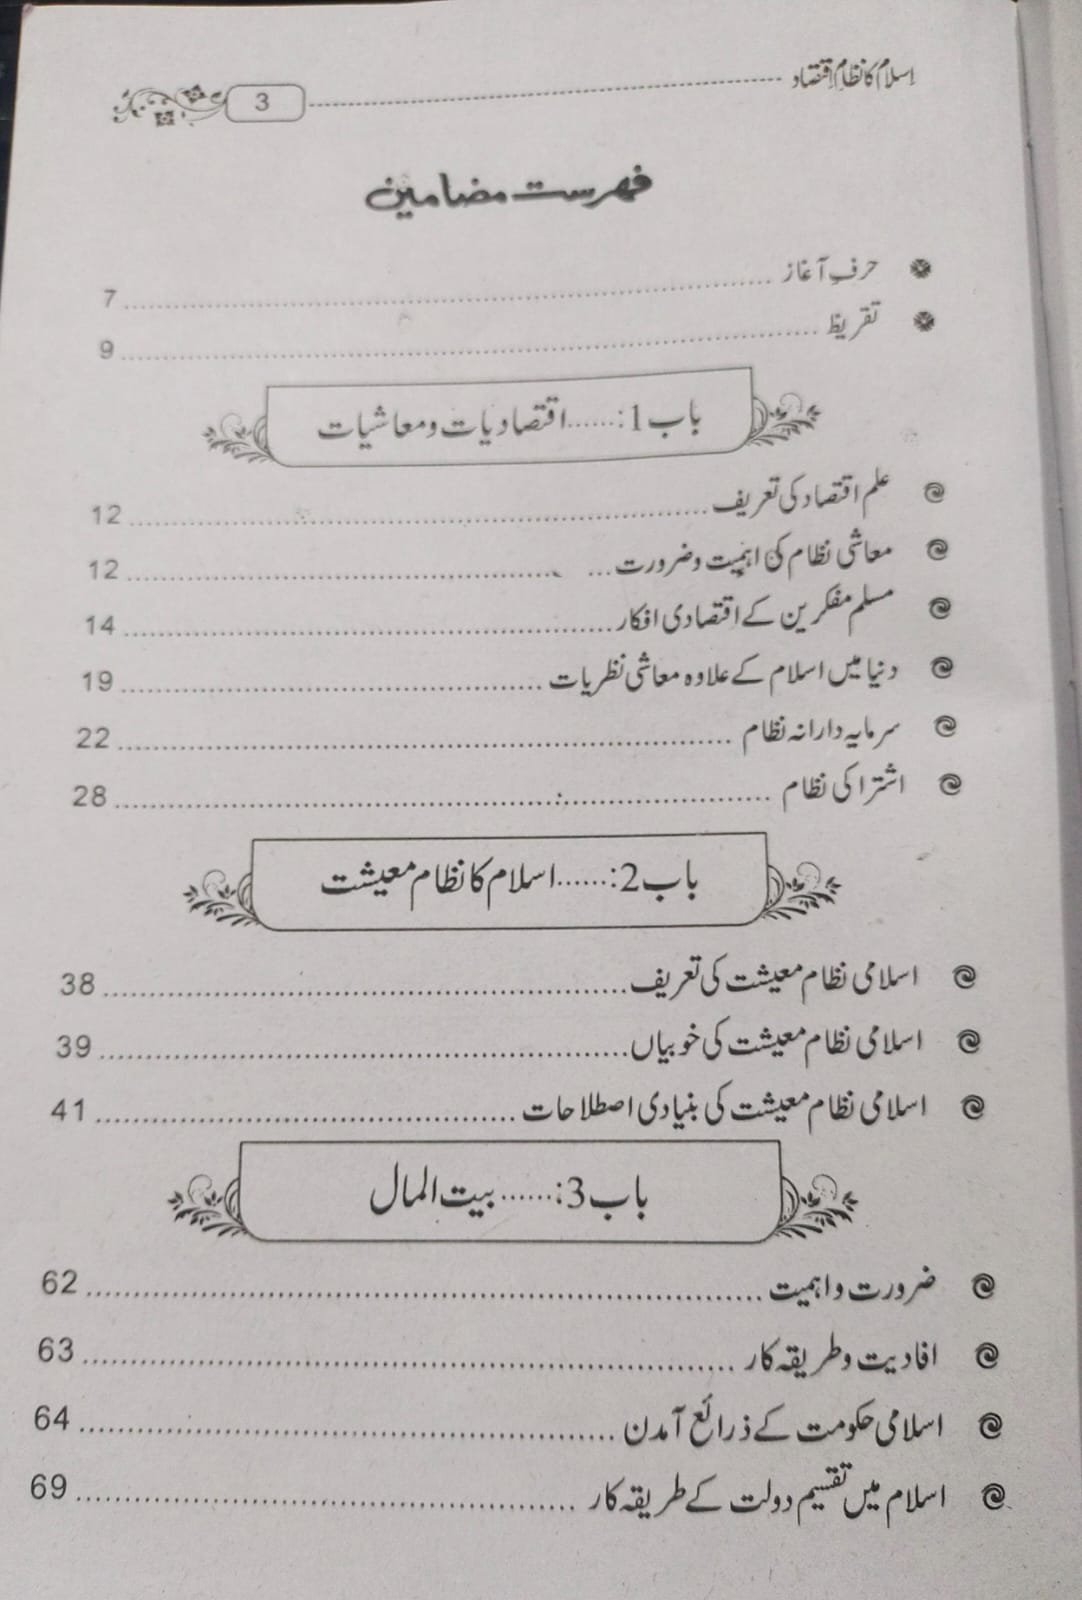 اسلام کا نظامِ اقتصاد ........ 3
فہرست مضامین
حرفِ آغاز ........ 7
تقریظ ........ 9
باب 1:...... اقتصادیات و معاشیات
علم اقتصاد کی تعریف ........ 12
معاشی نظام کی اہمیت و ضرورت ........ 12
مسلم مفکرین کے اقتصادی افکار ........ 14
دنیا میں اسلام کے علاوہ معاشی نظریات ........ 19
سرمایہ دارانہ نظام ........ 22
اشتراکی نظام ........ 28
باب 2:...... اسلام کا نظام معیشت
اسلامی نظام معیشت کی تعریف ........ 38
اسلامی نظام معیشت کی خوبیاں ........ 39
اسلامی نظام معیشت کی بنیادی اصطلاحات ........ 41
باب 3:...... بیت المال
ضرورت و اہمیت ........ 62
افادیت و طریقہ کار ........ 63
اسلامی حکومت کے ذرائع آمدن ........ 64
اسلام میں تقسیم دولت کے طریقہ کار ........ 69